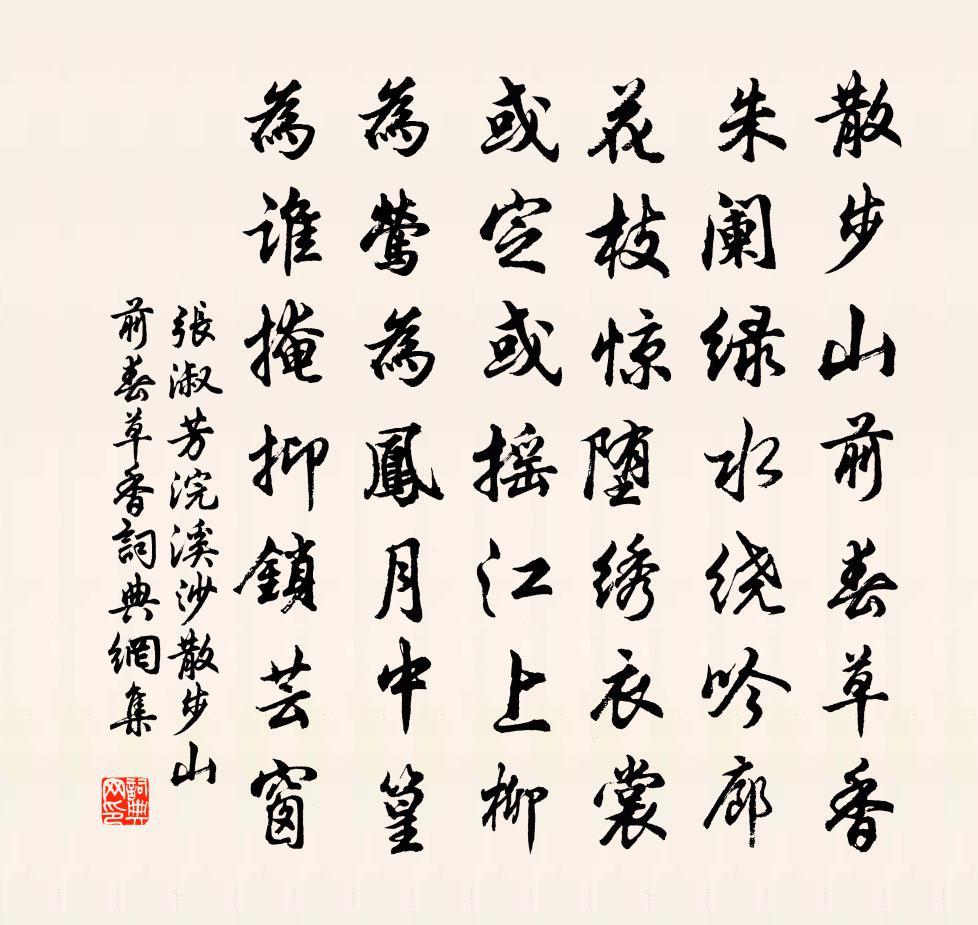 散步山前春草香
朱阑绿水绕吟廊
花枝惊堕绣衣裳
或定或摇江上柳
為鶯為鳳月中篁
為谁掩抑鎖芸窗
張淑芳浣溪沙散步山
前春草香詞典網集
詞典
网印